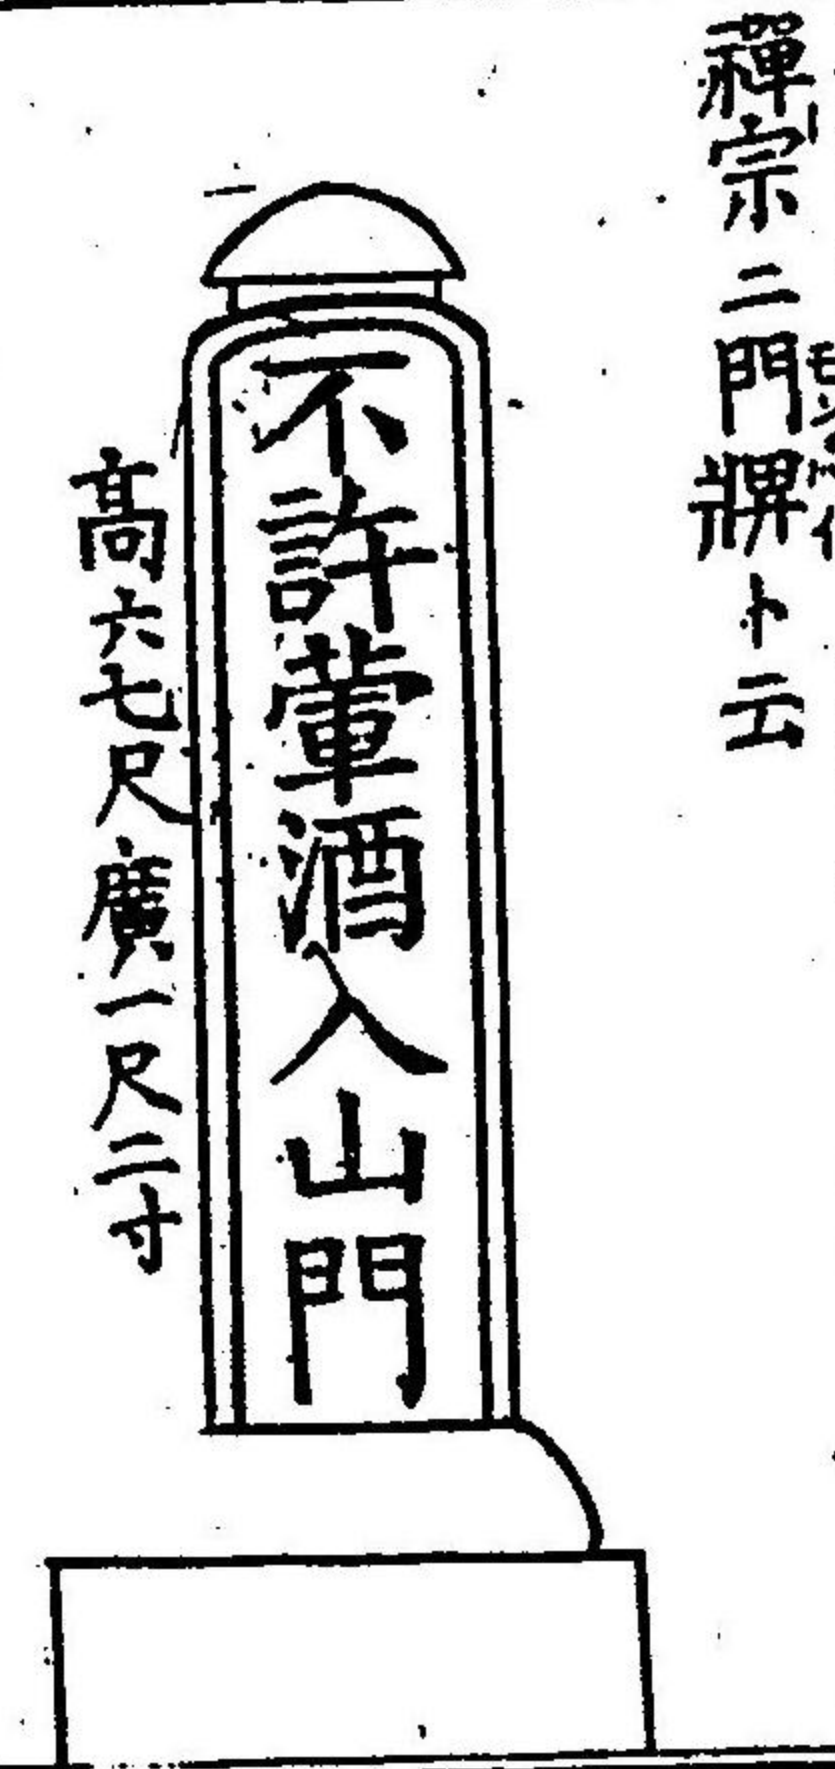 禪宗二門牌ト云
不許葷酒入山門
高六七尺廣一尺二寸